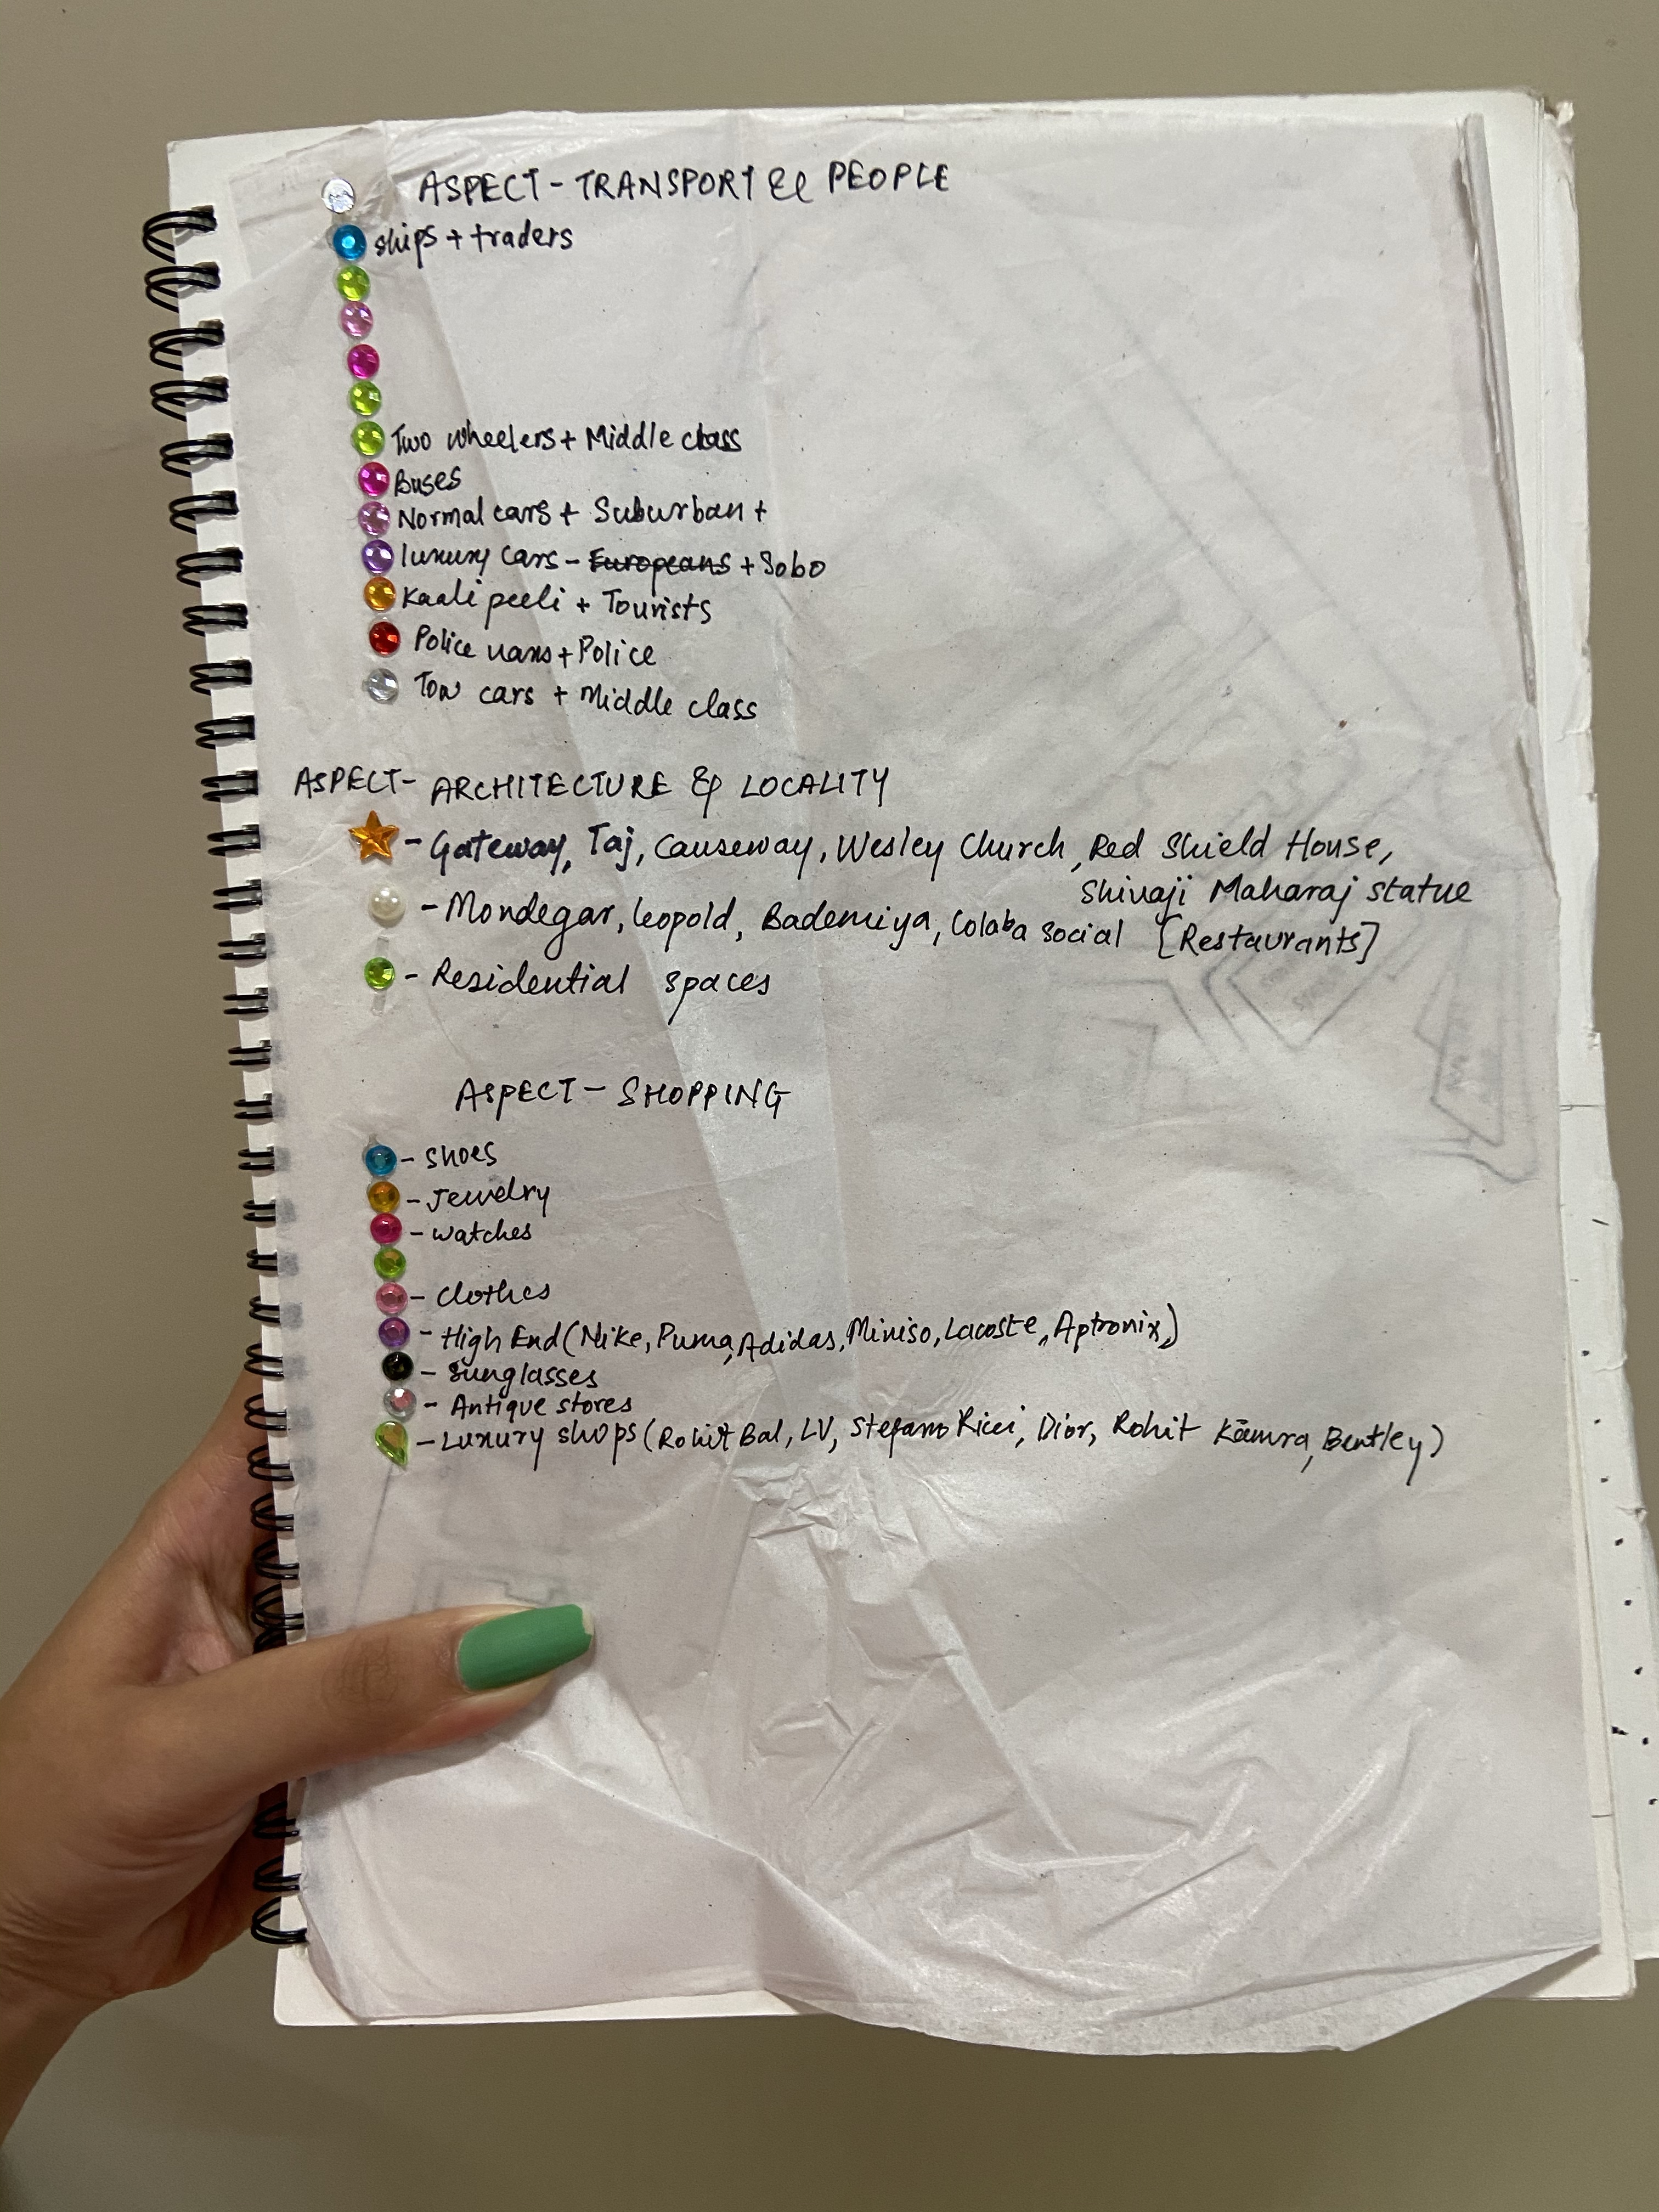 ASPECT - TRANSPORT & PEOPLE
ships + traders
Two wheelers + Middle class
Buses
Normal cars + Suburban +
luxury cars - Europeans + Sobo
Kaali peeli + Tourists
Police vans + Police
Tow cars + Middle class
ASPECT - ARCHITECTURE & LOCALITY
- Gateway, Taj, Causeway, Wesley Church, Red Shield House,
Shivaji Maharaj statue
- Mondegar, leopold, Bademiya, Colaba social [Restaurants]
- Residential spaces
ASPECT - SHOPPING
- shoes
- Jewelry
- watches
- clothes
- High End (Nike, Puma, Adidas, Miniso, Lacoste, Aptronix)
- sunglasses
- Antique stores
- Luxury shops (Rohit Bal, LV, Stefano Ricci, Dior, Rohit Kamra, Bentley)